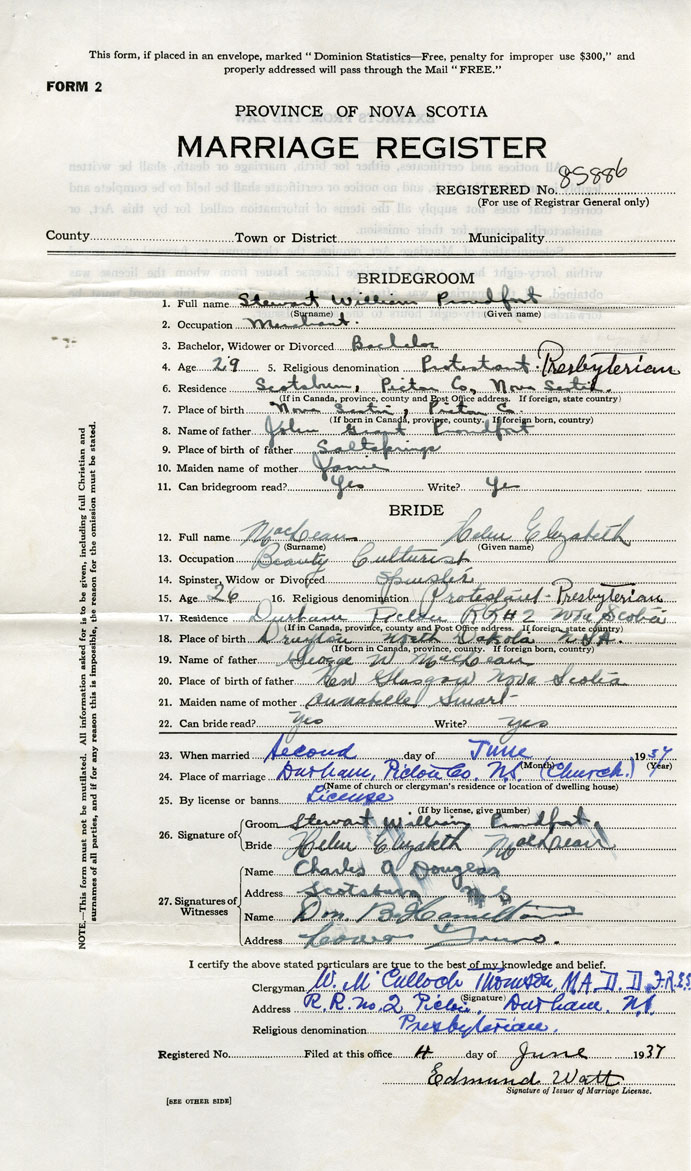 This form, if placed in an envelope, marked "Dominion Statistics—Free, penalty for improper use $300," and
properly addressed will pass through the Mail "FREE."
FORM 2
PROVINCE OF NOVA SCOTIA
MARRIAGE REGISTER
REGISTERED No. 85886
(For use of Registrar General only)
County Town or District Municipality
BRIDEGROOM
1. Full name Stewart William Proudfoot
(Surname) (Given name)
2. Occupation Merchant.
3. Bachelor, Widower or Divorced Bachelor
4. Age 29 5. Religious denomination Protestant Presbyterian
6. Residence Scotsburn, Pictou Co, Nova Scotia.
(If in Canada, province, county and Post Office address. If foreign, state country)
7. Place of birth Nova Scotia, Pictou Co.
(If born in Canada, province, county. If foreign born, country)
8. Name of father John Grant Proudfoot
9. Place of birth of father Saltsprings
10. Maiden name of mother
11. Can bridegroom read? Yes Write? Yes
BRIDE
12. Full name MacLean Helen Elizabeth
(Surname) (Given name)
13. Occupation Beauty Culturist
14. Spinster, Widow or Divorced Spinster
15. Age 26 16. Religious denomination Protestant - Presbyterian
17. Residence Durham Pictou RR#2 Nova Scotia
(If in Canada, province, county and Post Office address. If foreign, state country)
18. Place of birth Drayton North Dakota U.S.A.
(If born in Canada, province, county. If foreign born, country)
19. Name of father George W MacLean
20. Place of birth of father New Glasgow Nova Scotia
21. Maiden name of mother Annabelle Smart
22. Can bride read? Yes Write? yes
23. When married Second day of June 1937
(Month) (Year)
24. Place of marriage Durham, Pictou Co. N.S. (Church.)
(Name of church or clergyman's residence or location of dwelling house)
25. By license or banns License
(If by license, give number)
26. Signature of Groom Stewart William Proudfoot
Bride Helen Elizabeth MacLean
27. Signatures of Witnesses Name Charles A Douglas
Address Scotsburn N.S
Name B. Hamilton
Address
I certify the above stated particulars are true to the best of my knowledge and belief.
Clergyman W. McCulloch Thomson, M.A. D.D. F.R.G.S.
(Signature)
Address R.R. No. 2 Pictou, Durham, N.S.
Religious denomination Presbyterian.
Registered No. Filed at this office 4 day of June 1937
Edmund Watt
Signature of Issuer of Marriage License.
[SEE OTHER SIDE]
NOTE.—This form must not be mutilated. All information asked for is to be given, including full Christian and
surnames of all parties, and if for any reason this is impossible, the reason for the omission must be stated.